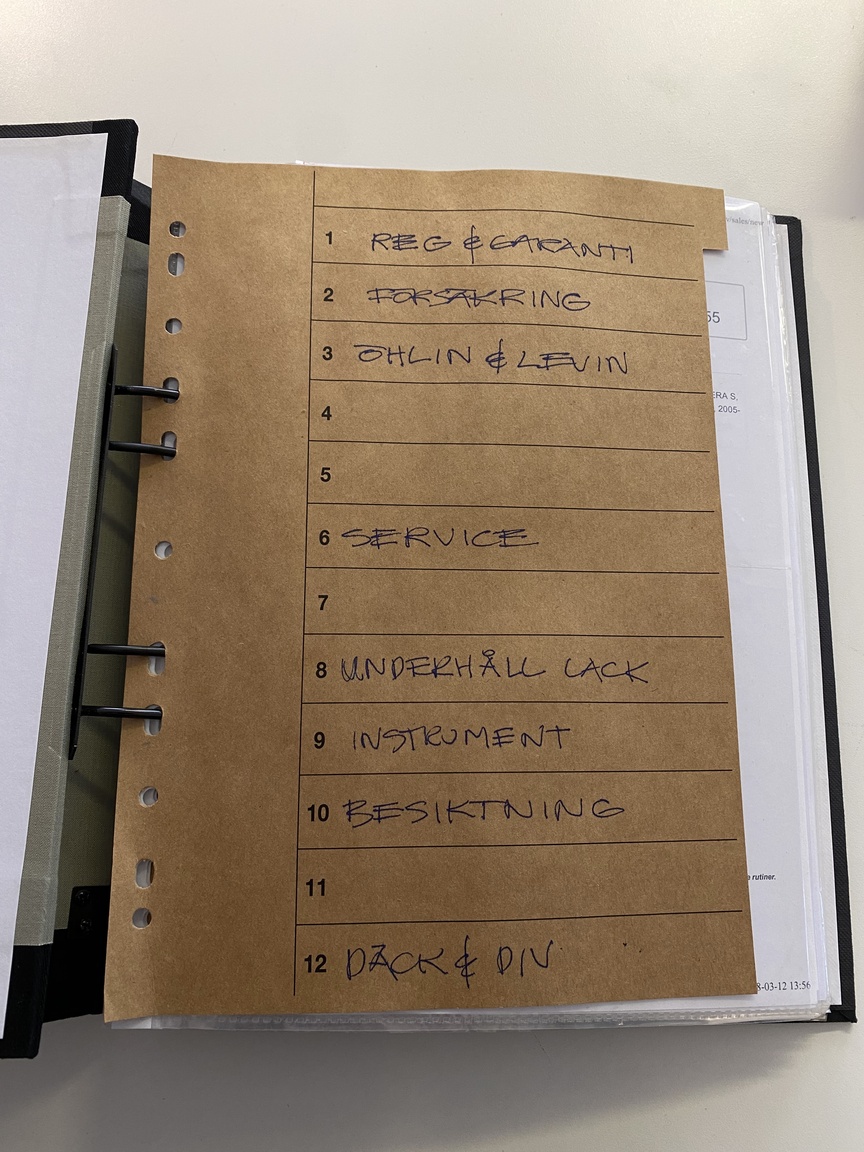 1 REG & GARANTI
2 FÖRSÄKRING
3 ÖHLIN & LEVIN
4
5
6 SERVICE
7
8 UNDERHÅLL LACK
9 INSTRUMENT
10 BESIKTNING
11
12 DÄCK & DIV
/sales/new
55
ERA S.
, 2005-
rutiner.
8-03-12 13:56